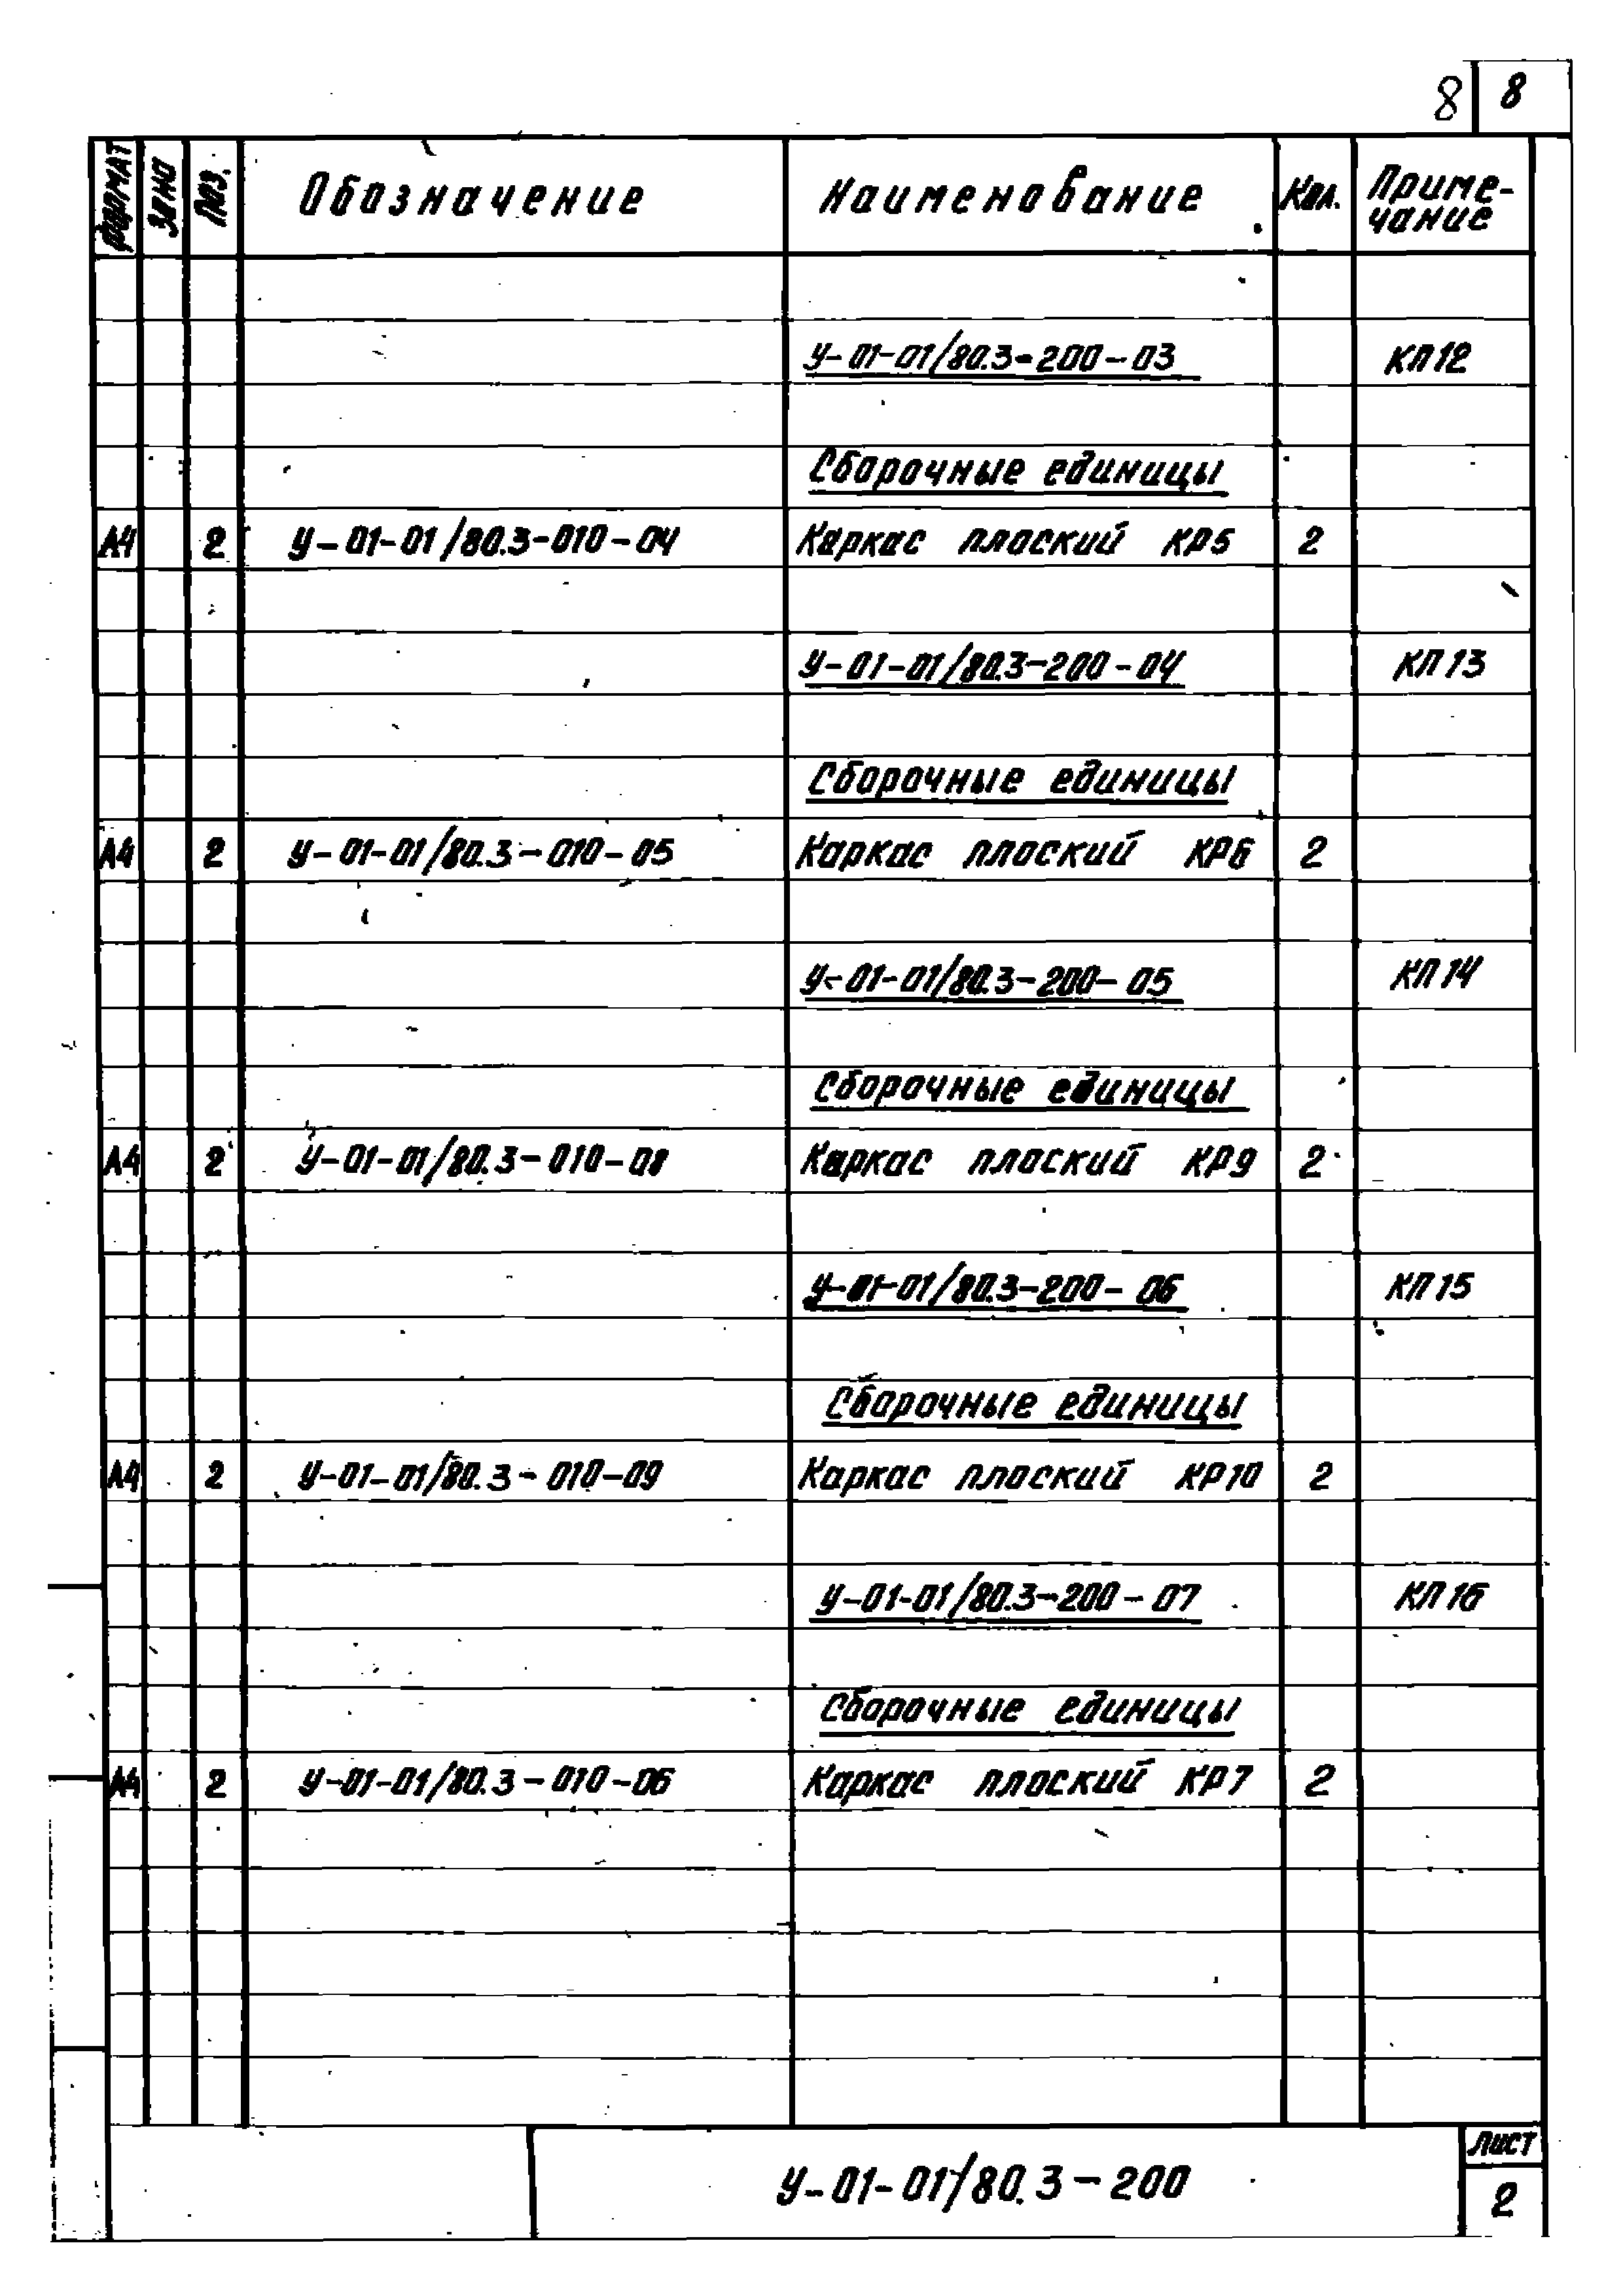 8 8
Формат Зона Поз. Обозначение Наименование Кол. Приме-
чание
У-01-01/80.3-200-03 КП12
Сборочные единицы
А4 2 У-01-01/80.3-010-04 Каркас плоский КР5 2
У-01-01/80.3-200-04 КП13
Сборочные единицы
А4 2 У-01-01/80.3-010-05 Каркас плоский КР6 2
У-01-01/80.3-200-05 КП14
Сборочные единицы
А4 2 У-01-01/80.3-010-08 Каркас плоский КР9 2
У-01-01/80.3-200-06 КП15
Сборочные единицы
А4 2 У-01-01/80.3-010-09 Каркас плоский КР10 2
У-01-01/80.3-200-07 КП16
Сборочные единицы
А4 2 У-01-01/80.3-010-06 Каркас плоский КР7 2
У-01-01/80.3-200
Лист
2